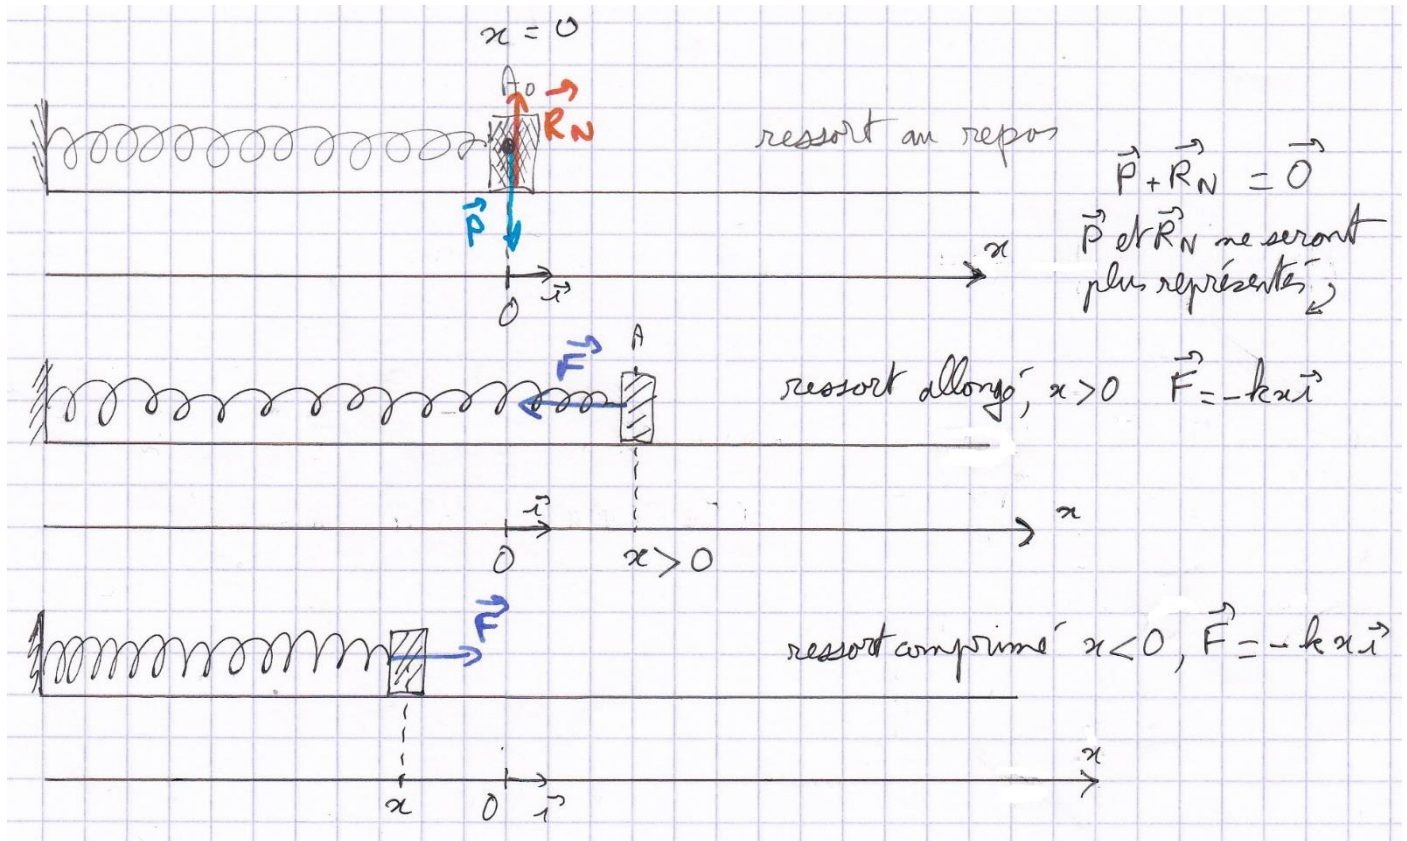 x = 0
A₀
R⃗_N
ressort au repos
P⃗ + R⃗_N = 0⃗
P⃗
P⃗ et R⃗_N ne seront
plus représentés
x
0
i⃗
A
F⃗
ressort allongé, x > 0 F⃗ = -kx i⃗
i⃗
x
0
x > 0
F⃗
ressort comprimé x < 0, F⃗ = -kx i⃗
x
x
0
i⃗